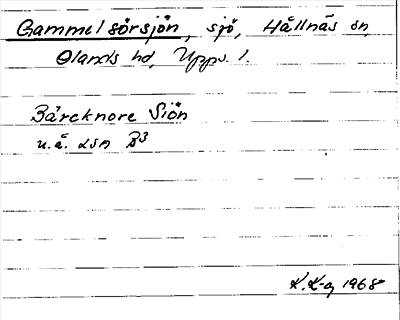 Gammelsörsjön, sjö, Hållnäs sn,
Olands hd, Upps. l.
Bärcknore Siön
u.å. LSA B3
K.K-g 1968